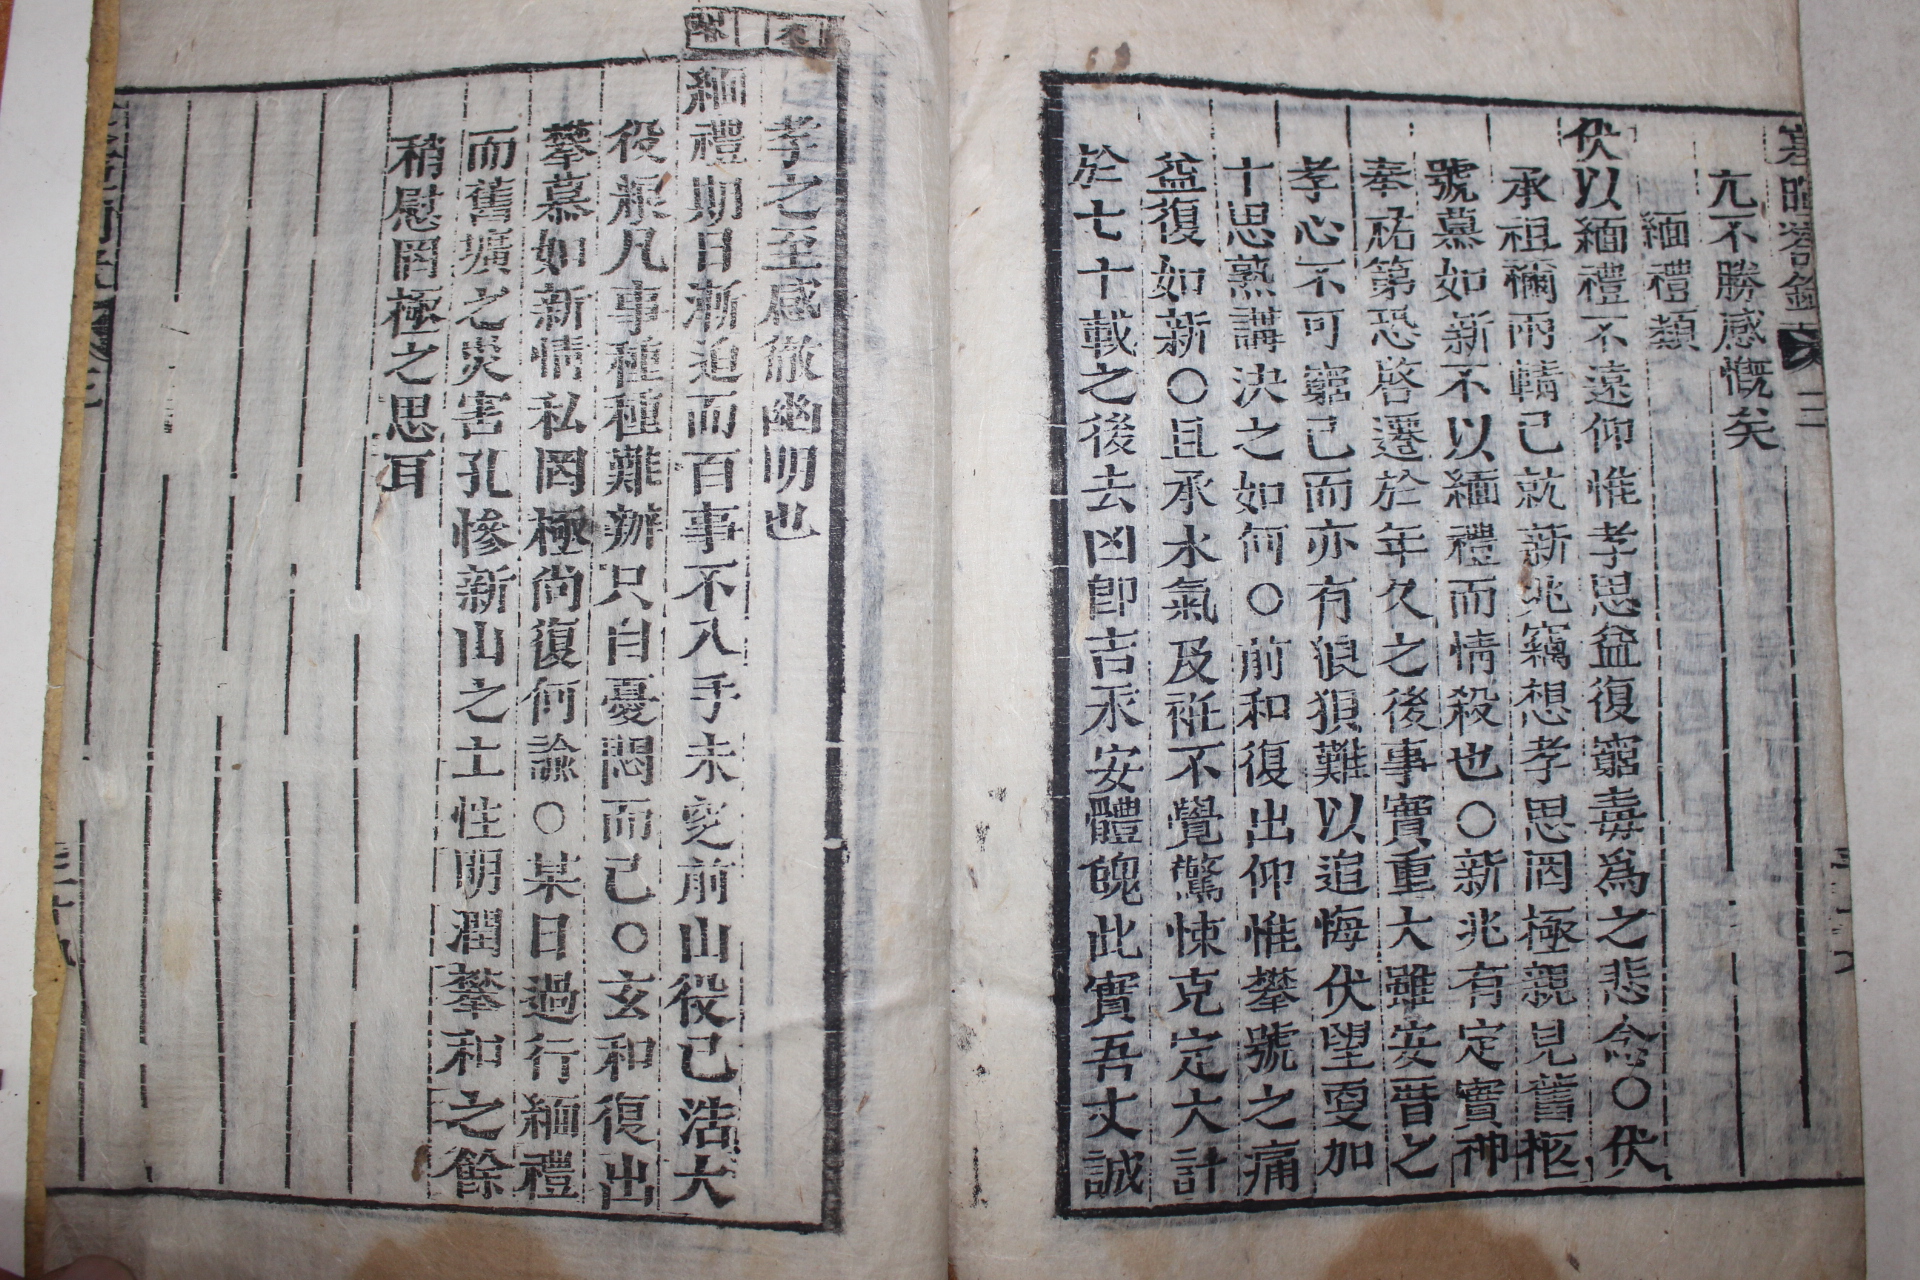 寒暄箚錄
亢不勝感慨矣
緬禮類
伏以緬禮不遠仰惟孝思益復窮毒爲之悲念○伏
承祖禰兩輤已就新兆竊想孝思罔極親見舊柩
號慕如新不以緬禮而情殺也○新兆有定實神
奉祐第恐啓遷於年久之後事實重大雖安厝之
孝心不可窮已而亦有狼狽難以追悔伏望更加
十思熟講決之如何○前和復出仰惟攀號之痛
益復如新○且承水氣及袵不覺驚悚克定大計
於七十載之後去凶卽吉永安體魄此實吾丈誠
孝之至感徹幽明也
緬禮期日漸迫而百事不入手未窆前山役已浩大
役粮凡事種種難辦只自憂悶而已○玄和復出
攀慕如新情私罔極尙復何諭○某日過行緬禮
而舊壙之災害孔慘新山之土性明潤攀和之餘
稍慰罔極之思耳